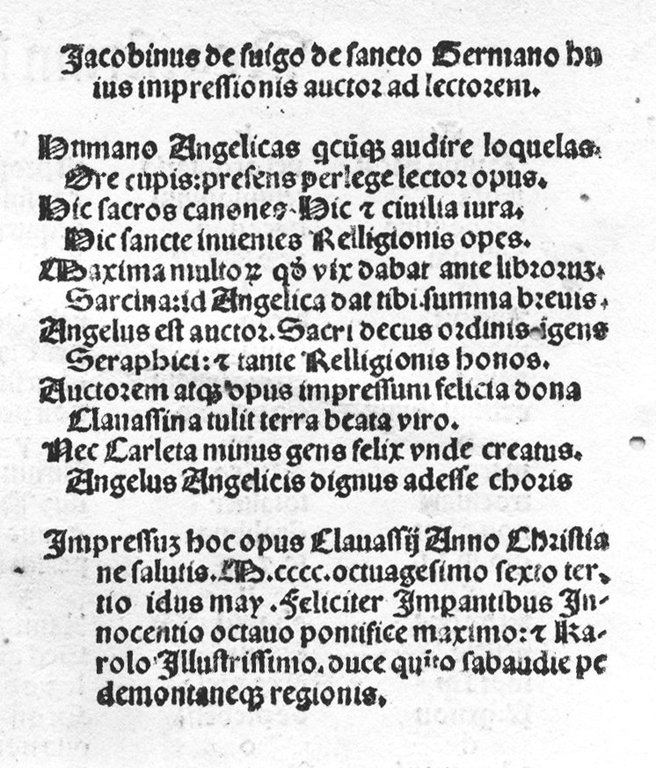 Jacobinus de suigo de sancto Germano hu
ius impressionis auctor ad lectorem.
Humano Angelicas qcũqꝫ audire loquelas.
Ore cupis: presens perlege lector opus.
Hic sacros canones. Hic ⁊ ciuilia iura.
Hic sancte inuenies Relligionis opes.
Maxima multoꝝ qđ vix dabat ante libroruꝫ.
Sarcina: id Angelica dat tibi summa breuis.
Angelus est auctor. Sacri decus ordinis igens
Seraphici: ⁊ tante Relligionis honos.
Auctorem atqꝫ opus impressum felicia dona
Clauassina tulit terra beata viro.
Nec Carleta minus gens felix vnde creatus.
Angelus Angelicis dignus adesse choris
Impressuꝫ hoc opus Clauassij Anno Christia
ne salutis. M.cccc.octuagesimo sexto ter-
tio idus may. Feliciter Imꝑantibus In-
nocentio octauo pontifice maximo: ⁊ Ka-
rolo Illustrissimo. duce quĩto sabaudie pe
demontaneqꝫ regionis.